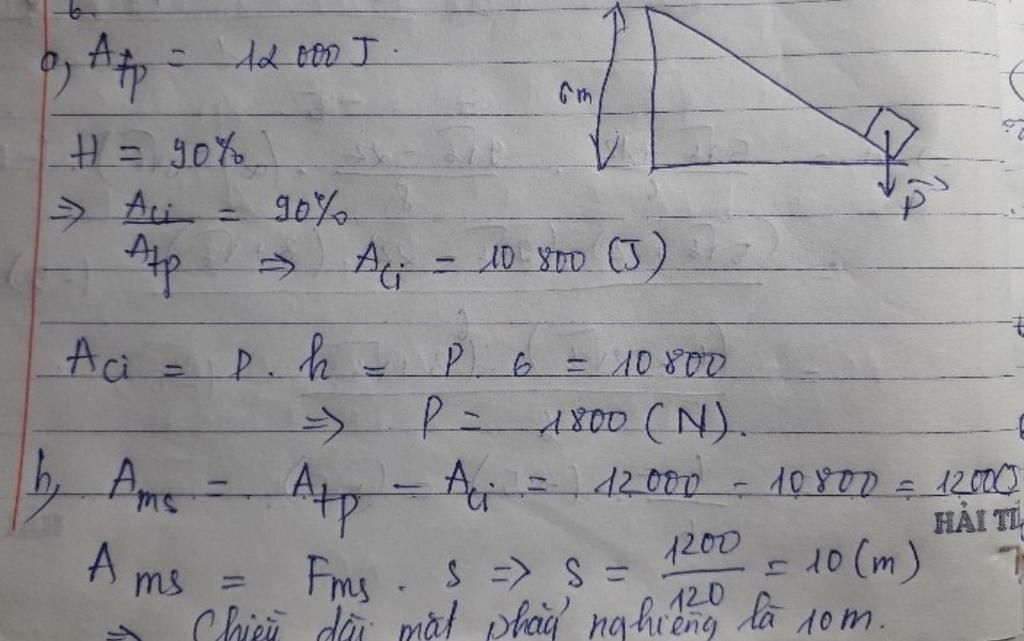 6.
a, Atp = 12 000 J.
6m
H = 90%
P
=> Aci/Atp = 90%
=> Aci = 10 800 (J)
Aci = P. h = P. 6 = 10 800
=> P = 1800 (N).
b, Ams = Atp - Aci = 12000 - 10800 = 1200(J
HẢI TI
Ams = Fms . s => s = 1200/120 = 10 (m)
=> Chiều dài mặt phẳng nghiêng là 10m.